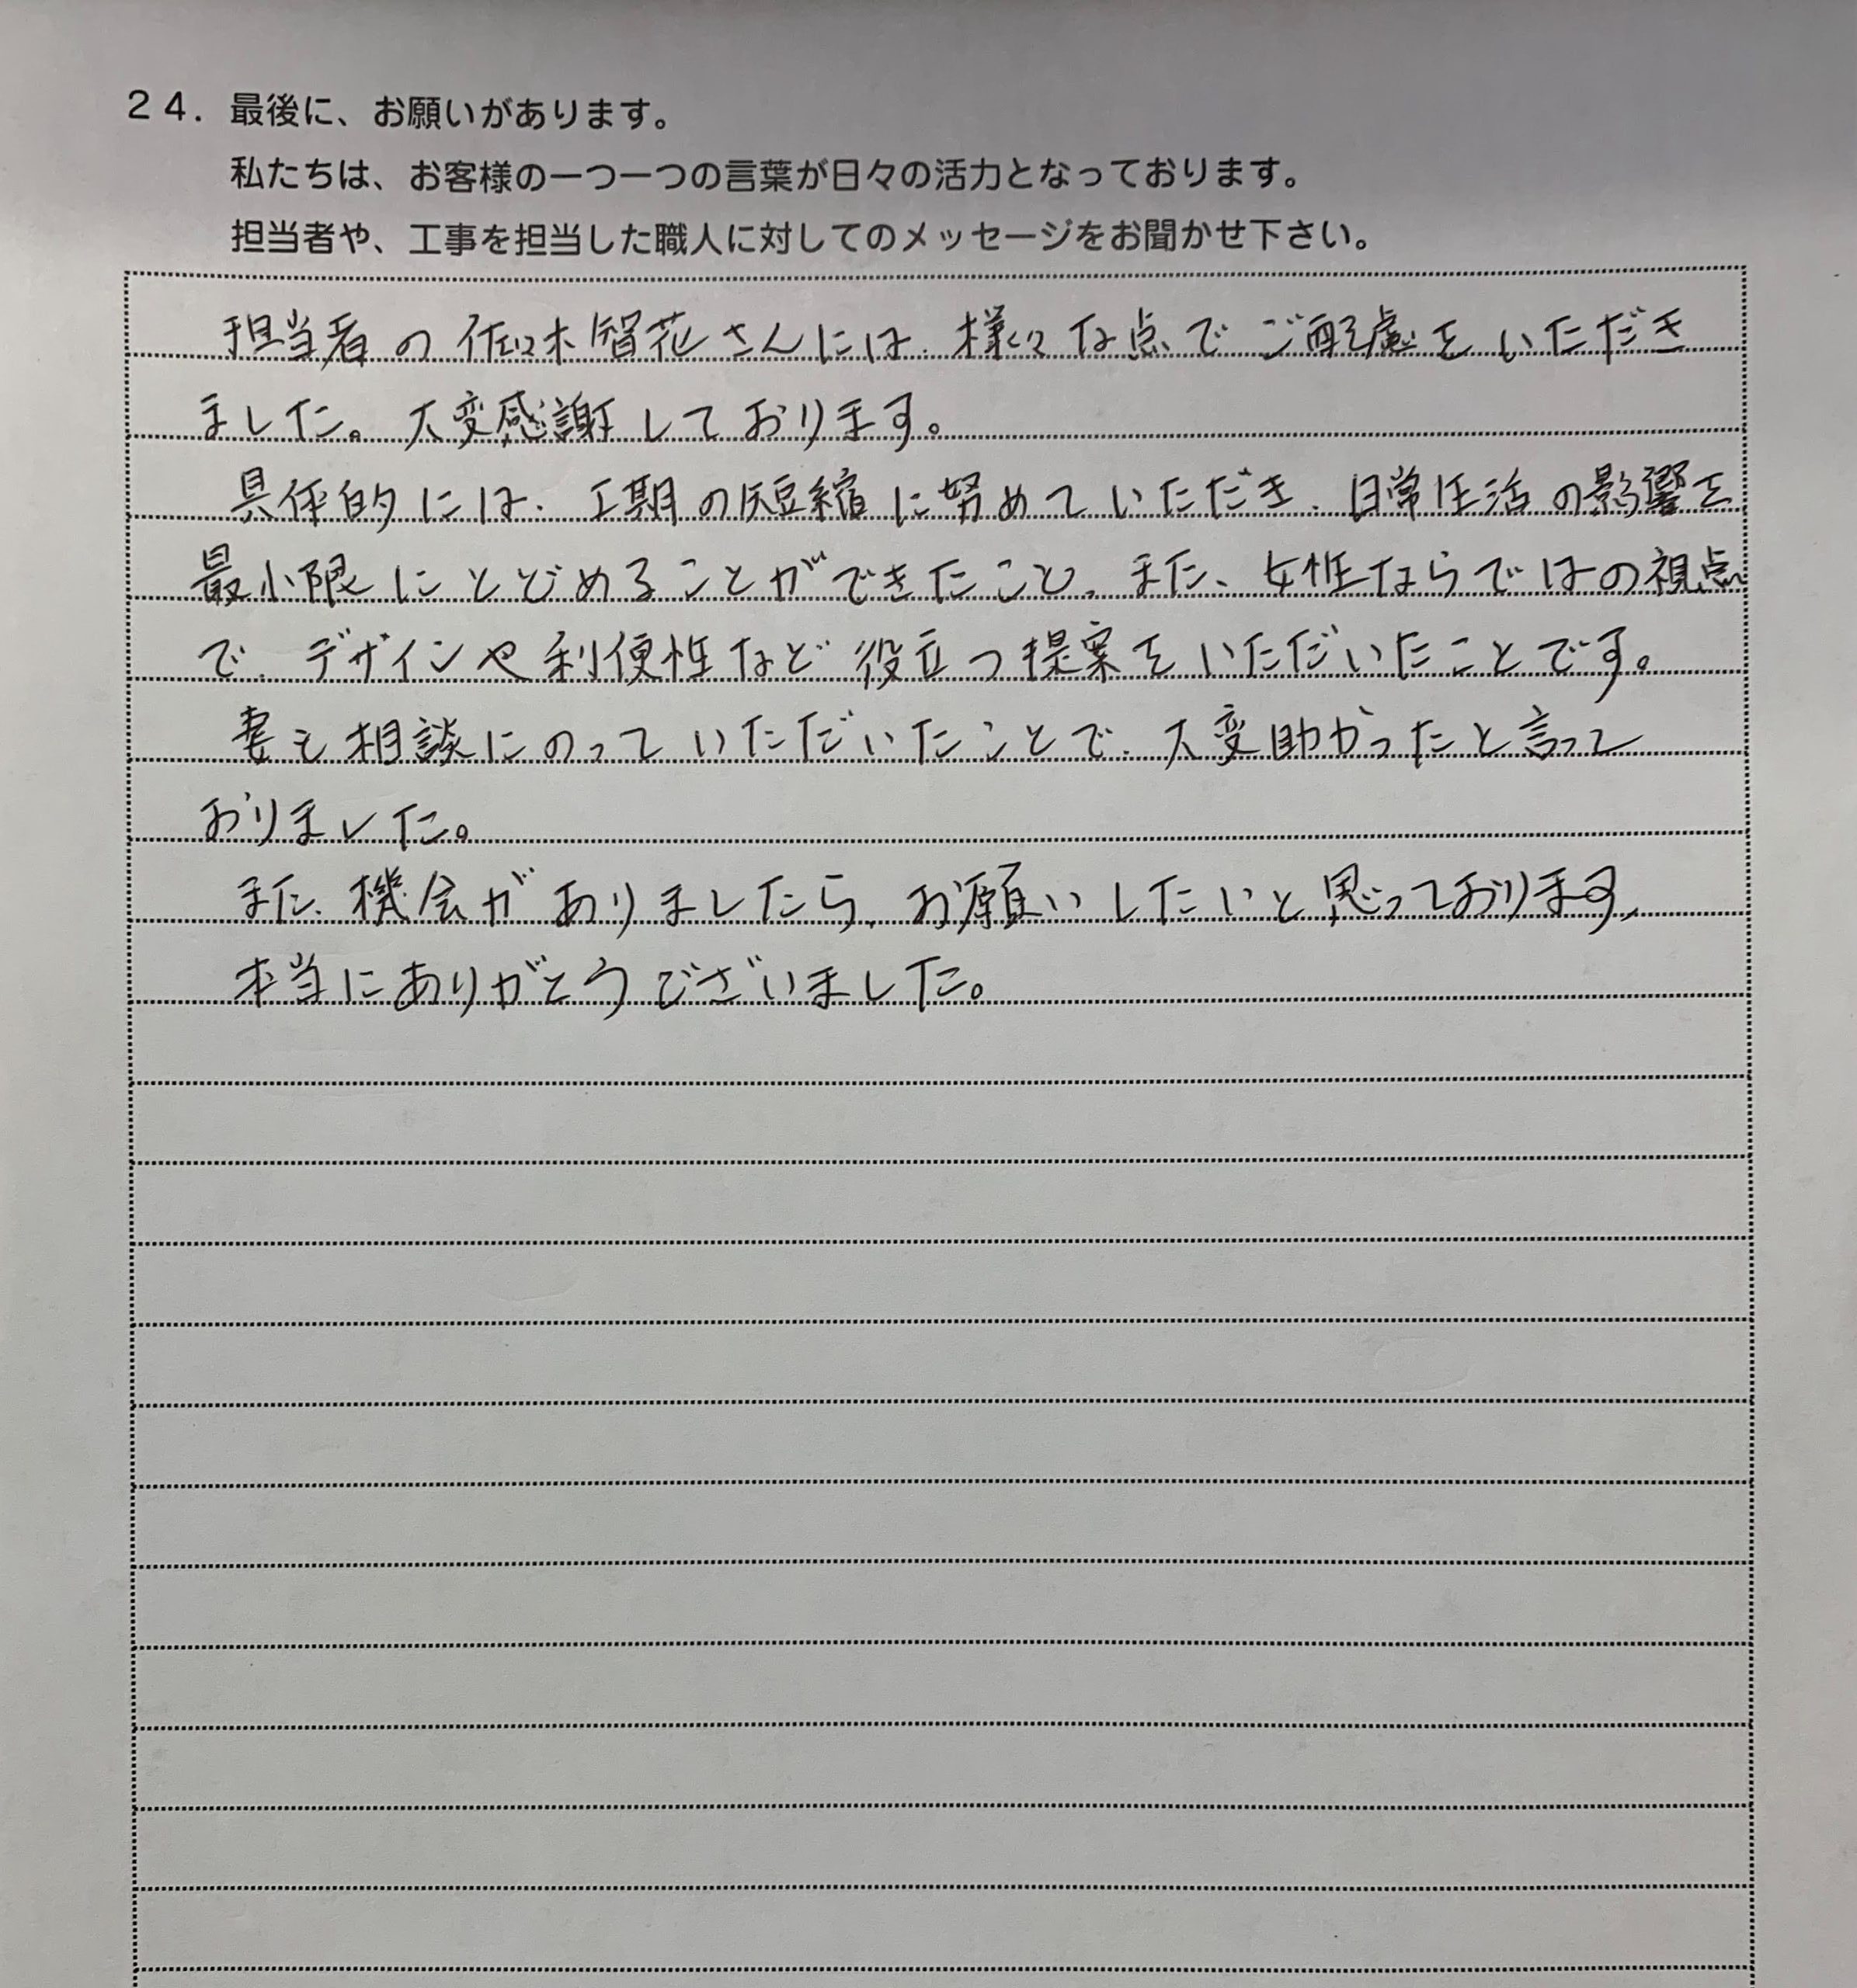 24. 最後に、お願いがあります。
私たちは、お客様の一つ一つの言葉が日々の活力となっております。
担当者や、工事を担当した職人に対してのメッセージをお聞かせ下さい。
担当者の佐々木智花さんには、様々な点でご配慮をいただき
ました。大変感謝しております。
具体的には、工期の短縮に努めていただき、日常生活の影響を
最小限にとどめることができたこと、また、女性ならではの視点
で、デザインや利便性など役立つ提案をいただいたことです。
妻も相談にのっていただいたことで、大変助かったと言って
おりました。
また、機会がありましたら、お願いしたいと思っております。
本当にありがとうございました。